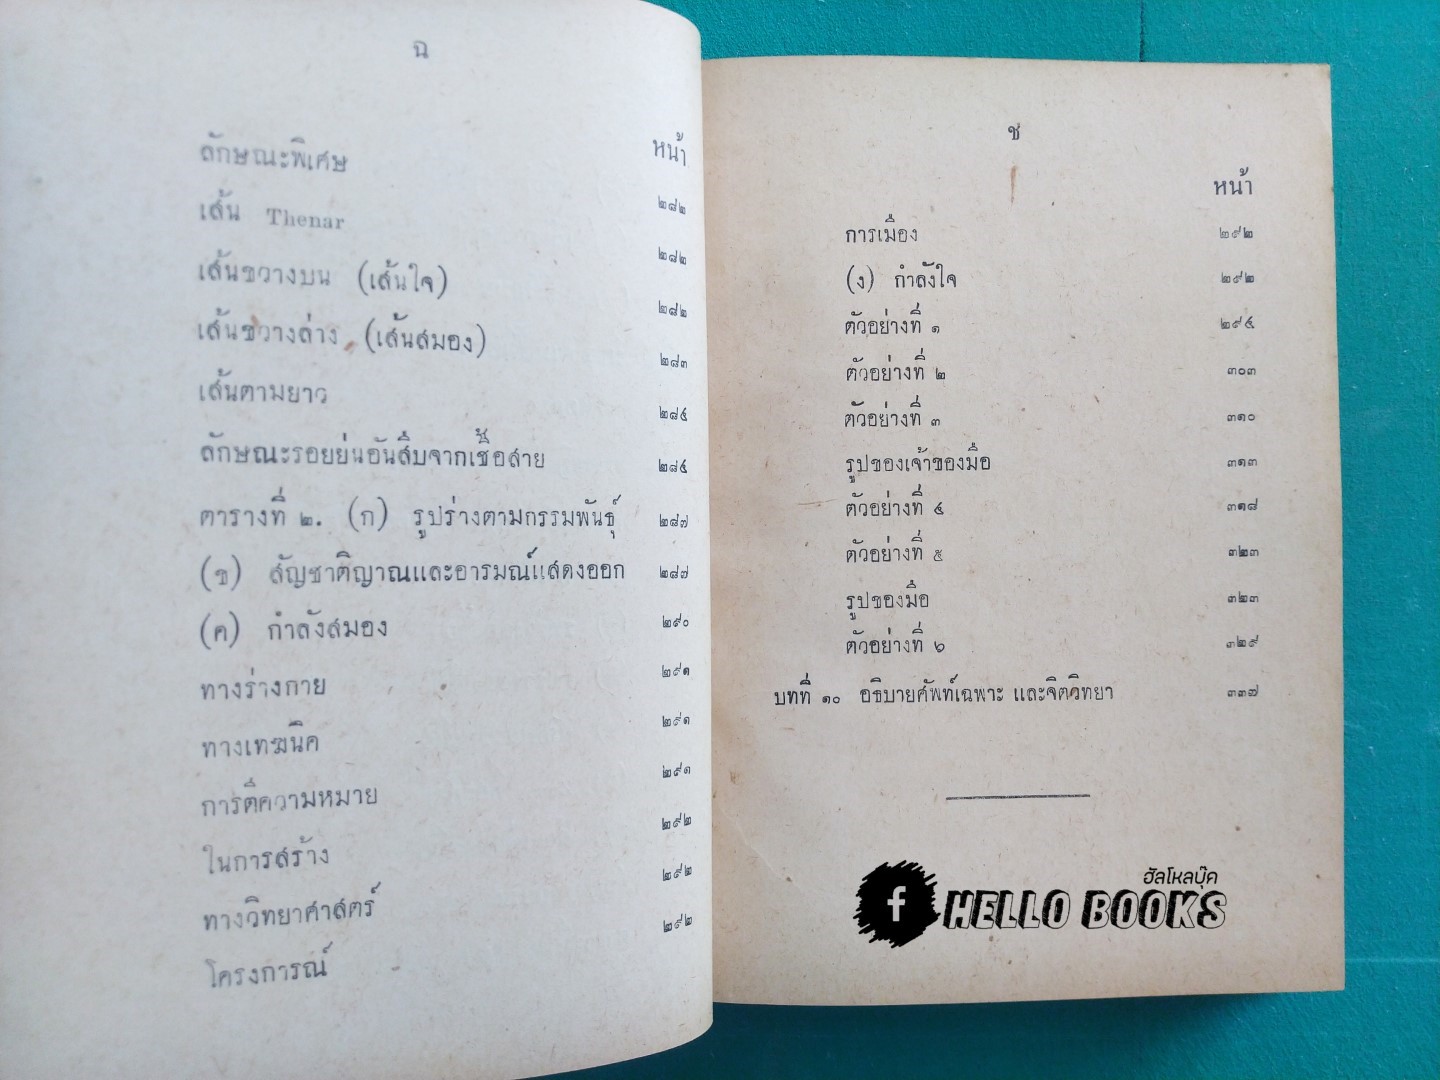 ฉ
หน้า
ลักษณะพิเศษ ๒๘๒
เส้น Thenar ๒๘๒
เส้นขวางบน (เส้นใจ) ๒๘๒
เส้นขวางล่าง (เส้นสมอง) ๒๘๓
เส้นตามยาว ๒๘๔
ลักษณะรอยย่นอันสืบจากเชื้อสาย ๒๘๔
ตารางที่ ๒. (ก) รูปร่างตามกรรมพันธุ์ ๒๘๗
(ข) สัญชาติญาณและอารมณ์แสดงออก ๒๘๗
(ค) กำลังสมอง ๒๙๐
ทางร่างกาย ๒๙๑
ทางเทฆนิค ๒๙๑
การตีความหมาย ๒๙๑
ในการสร้าง ๒๙๒
ทางวิทยาศาสตร์ ๒๙๒
โครงการณ์ ๒๙๒
ช
หน้า
การเมือง ๒๙๒
(ง) กำลังใจ ๒๙๒
ตัวอย่างที่ ๑ ๒๙๔
ตัวอย่างที่ ๒ ๓๐๓
ตัวอย่างที่ ๓ ๓๑๐
รูปของเจ้าของมือ ๓๑๓
ตัวอย่างที่ ๔ ๓๑๘
ตัวอย่างที่ ๕ ๓๒๓
รูปของมือ ๓๒๓
ตัวอย่างที่ ๖ ๓๒๙
บทที่ ๑๐ อธิบายศัพท์เฉพาะ และจิตวิทยา ๓๓๗
ฮัลโหลบุ๊ค
f HELLO BOOKS